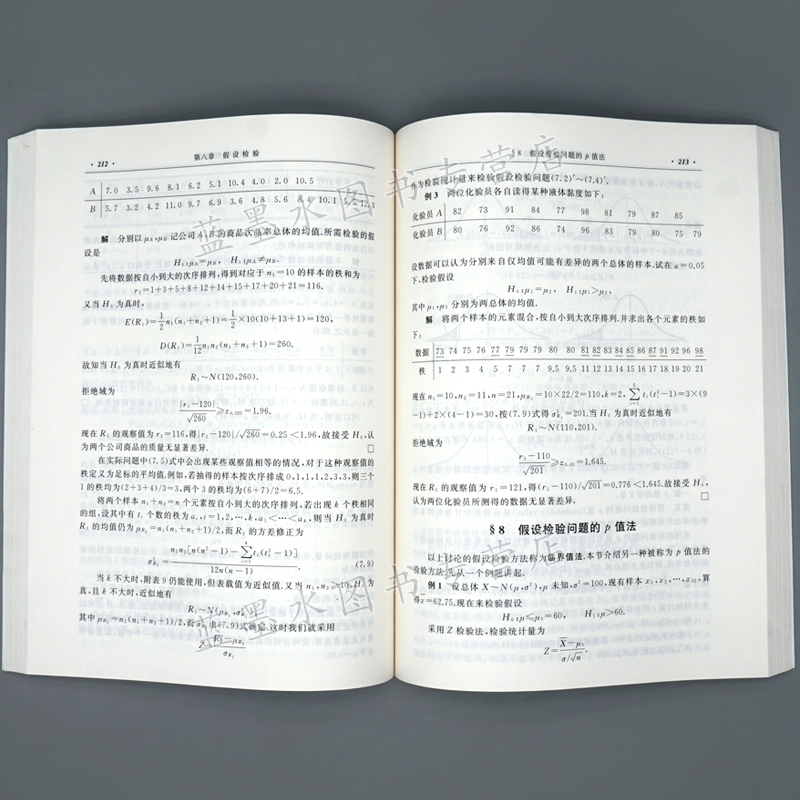 ·212·
第八章 假设检验
A 7.0 3.5 9.6 8.1 6.2 5.1 10.4 4.0 2.0 10.5
B 5.7 3.2 4.2 11.0 9.7 6.9 3.6 4.8 5.6 8.4 10.1 5.5 12.3
解 分别以μA,μB记公司A,B的商品次品率总体的均值.所需检验的假
设是
H₀:μA=μB, H₁:μA≠μB.
先将数据按自小到大的次序排列,得到对应于n₁=10的样本的秩和为
r₁=1+3+5+8+12+14+15+17+20+21=116,
又当H₀为真时,
E(R₁)=1/2 n₁(n₁+n₂+1)=1/2×10(10+13+1)=120,
D(R₁)=1/12 n₁n₂(n₁+n₂+1)=260.
故知当H₀为真时近似地有
R₁~N(120,260).
拒绝域为
|r₁-120|/√260≥z₀.₀₂₅=1.96,
现在R₁的观察值为r₁=116,得|r₁-120|/√260=0.25<1.96,故接受H₀,认
为两个公司商品的质量无显著差异. □
在实际问题中(7.5)式中会出现某些观察值相等的情况,对于这种观察值的
秩定义为足标的平均值.例如,若抽得的样本按次序排成0,1,1,1,2,3,3,则三个
1的秩均为(2+3+4)/3=3,两个3的秩均为(6+7)/2=6.5.
将两个样本n₁+n₂=n个元素按自小到大的次序排列,若出现k个秩相同
的组,设其中有tᵢ个数的秩为aᵢ,i=1,2,…,k,a₁<…<aₖ,则当H₀为真时
R₁的均值仍为μR₁=n₁(n₁+n₂+1)/2,而R₁的方差修正为
σ²R₁=n₁n₂[n(n²-1)-∑tᵢ(tᵢ²-1)]/12n(n-1). (7.9)
当k不大时,附表9仍能使用,但表载值为近似值.又当n₁,n₂≥10,H₀为
真,且k不大时,近似地有
R₁~N(μR₁,σ²R₁),
其中μR₁=n₁(n₁+n₂+1)/2,而σ²R₁由(7.9)式确定.这时我们就采用
Z=(R₁-μR₁)/σR₁
§8 假设检验问题的p值法
·213·
作为检验统计量来检验假设检验问题(7.2)′~(7.4)′.
例3 两位化验员各自读得某种液体黏度如下:
化验员A 82 73 91 84 77 98 81 79 87 85
化验员B 80 76 92 86 74 96 83 79 80 75 79
设数据可以认为分别来自仅均值可能有差异的两个总体的样本.试在α=0.05
下,检验假设
H₀:μ₁=μ₂, H₁:μ₁>μ₂,
其中μ₁,μ₂分别为两总体的均值.
解 将两个样本的元素混合,按自小到大次序排列.并求出各个元素的秩如
下:
数据 73 74 75 76 77 79 79 79 80 80 81 82 83 84 85 86 87 91 92 96 98
秩 1 2 3 4 5
现在n₁=10,n₂=11,n=21,μR₁=10×22/2=110,k=2,∑tᵢ(tᵢ²-1)=3×(9
-1)+2×(4-1)=30,按(7.9)式得σ²R₁=201.当H₀为真时近似地有
R₁~N(110,201).
拒绝域为
(r₁-110)/√201≥z₀.₀₅=1.645.
现在R₁的观察值为r₁=121,得(r₁-110)/√201=0.776<1.645.故接受H₀,
认为两位化验员所测得的数据无显著差异. □
§8 假设检验问题的p值法
以上讨论的假设检验方法称为临界值法.本节介绍另一种被称为p值法的
检验方法,先从一个例题讲起.
例1 设总体X~N(μ,σ²),μ未知,σ²=100,现有样本x₁,x₂,…,x₅₂,算
得x̄=62.75.现在来检验假设
H₀:μ≤μ₀=60, H₁:μ>60.
采用Z检验法,检验统计量为
Z=(X̄-μ₀)/(σ/√n).
蓝墨水图书专营店
蓝墨水图书专营店